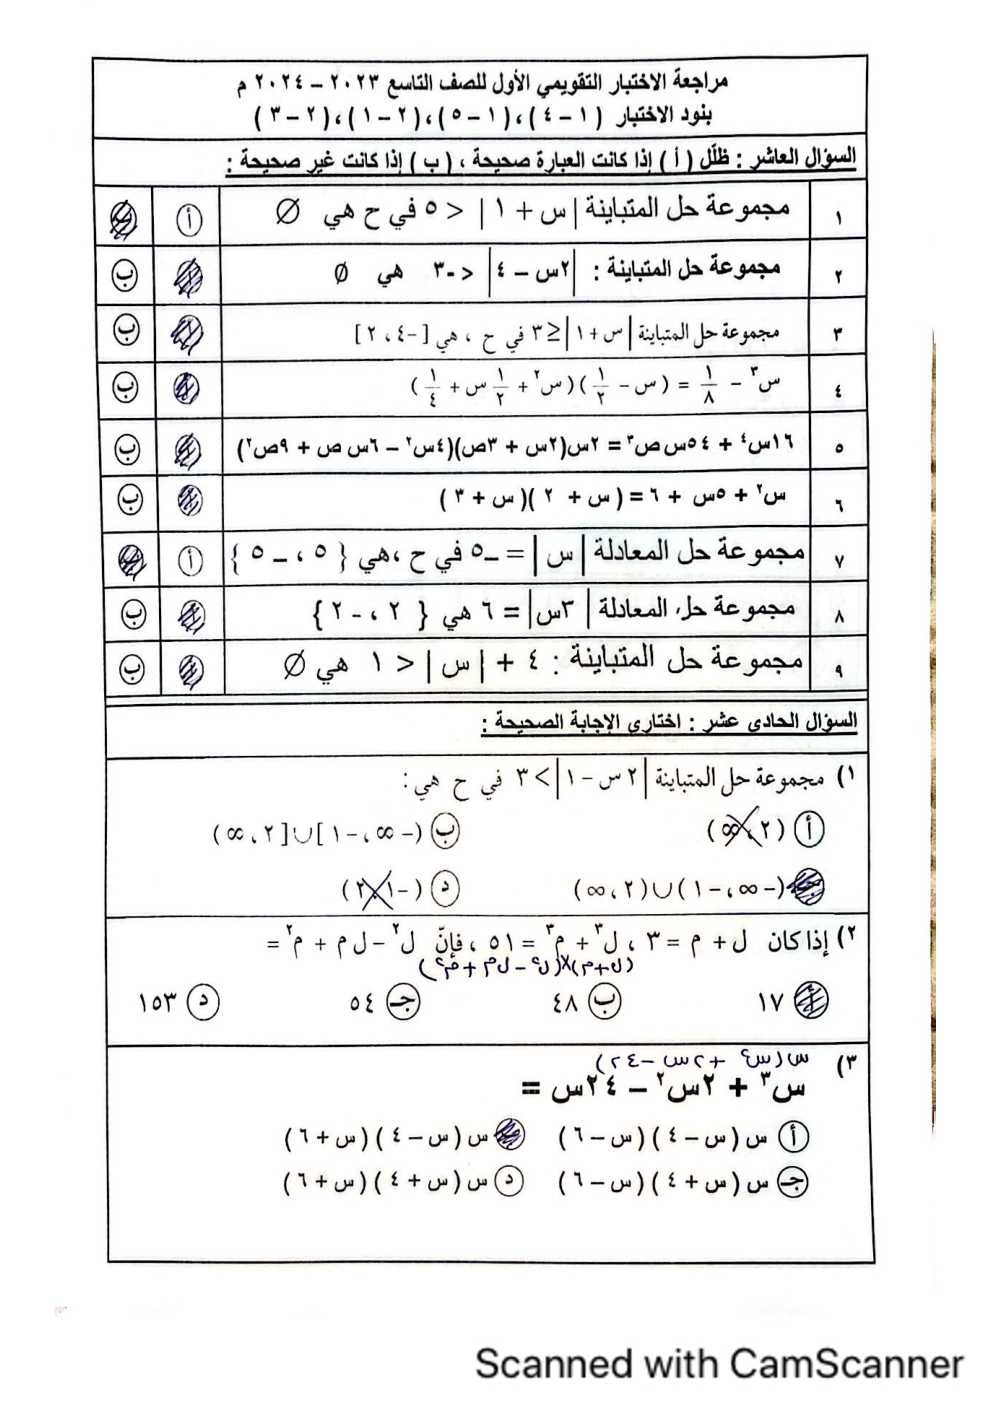 مراجعة الاختبار التقويمي الأول للصف التاسع ٢٠٢٣ – ٢٠٢٤ م
بنود الاختبار ( ١ – ٤ ) ، ( ١ – ٥ ) ، ( ٢ – ١ ) ، ( ٢ – ٣ )
السؤال العاشر : ظلّل ( أ ) إذا كانت العبارة صحيحة ، ( ب ) إذا كانت غير صحيحة :
١ مجموعة حل المتباينة | س + ١ | < ٥ في ح هي ∅ أ
٢ مجموعة حل المتباينة : | ٢س – ٤ | < -٣ هي ∅ ب
٣ مجموعة حل المتباينة | س + ١ | ≤ ٣ في ح ، هي [ -٤ ، ٢ ] ب
٤ س³ – ١/٨ = ( س – ١/٢ ) ( س² + ١/٢ س + ١/٤ ) ب
٥ ١٦س⁴ + ٥٤س ص³ = ٢س(٢س + ٣ص)(٤س² – ٦س ص + ٩ص²) ب
٦ س² + ٥س + ٦ = ( س + ٢ )( س + ٣ ) ب
٧ مجموعة حل المعادلة | س | = –٥ في ح ،هي { ٥ ، – ٥ } أ
٨ مجموعة حل المعادلة | ٣س | = ٦ هي { ٢ ، -٢ } ب
٩ مجموعة حل المتباينة : ٤ + | س | < ١ هي ∅ ب
السؤال الحادى عشر : اختارى الإجابة الصحيحة :
١) مجموعة حل المتباينة | ٢ س – ١ | > ٣ في ح هي :
أ ( ٢ ، ∞ ) ب ( – ∞ ، – ١ ] ∪ [ ٢ ، ∞ )
جـ ( – ∞ ، – ١ ) ∪ ( ٢ ، ∞ ) د ( – ١ ، ٢ )
٢) إذا كان ل + م = ٣ ، ل³ + م³ = ٥١ ، فإنّ ل² – ل م + م² =
(ل+م)×(ل² – لم + م²)
أ ١٧ ب ٤٨ جـ ٥٤ د ١٥٣
س(س² + ٢س – ٢٤)
٣) س³ + ٢س² – ٢٤س =
أ س ( س – ٤ ) ( س – ٦ ) س ( س – ٤ ) ( س + ٦ )
جـ س ( س + ٤ ) ( س – ٦ ) د س ( س + ٤ ) ( س + ٦ )
Scanned with CamScanner